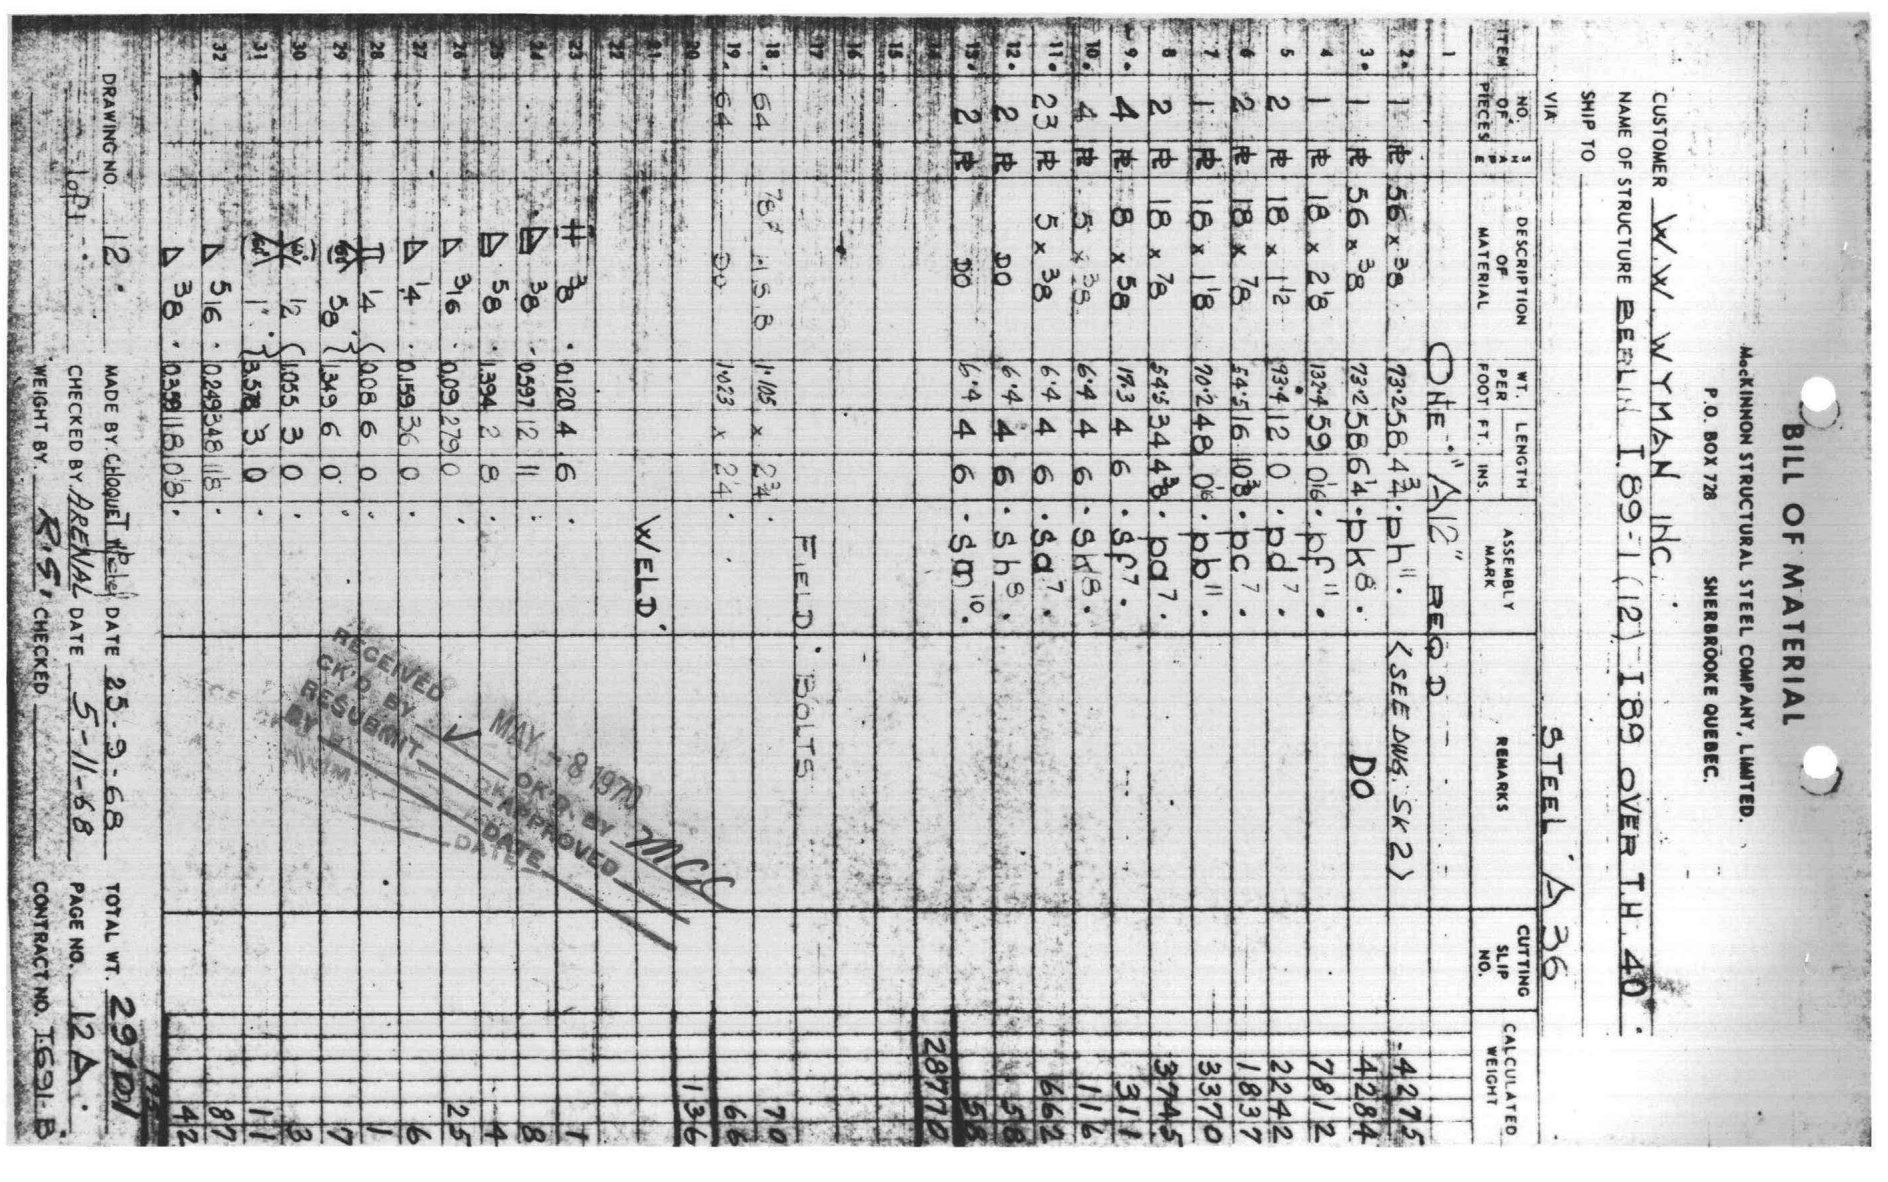 BILL OF MATERIAL
McKINNON STRUCTURAL STEEL COMPANY, LIMITED.
P.O. BOX 728 SHERBROOKE QUEBEC.
CUSTOMER W.W. WYMAN INC.
NAME OF STRUCTURE BERLIN I.89-1 (12) I 89 OVER T.H. 40.
SHIP TO
VIA STEEL A 36
ITEM NO. OF PIECES SHAPE DESCRIPTION OF MATERIAL WT. PER FOOT LENGTH FT. INS. ASSEMBLY MARK REMARKS CUTTING SLIP NO. CALCULATED WEIGHT
1 ONE "A12" REQD
2. 1 PL 56 x 3/8 73.2 58 4 3/4 . ph11 . (SEE DWG. SK 2) 4275
3. 1 PL 56 x 3/8 73.2 58 6 1/4 . pk8 . DO 4284
4 1 PL 18 x 2 1/8 132.4 59 0 1/16 . pf11 . 7812
5 2 PL 18 x 1 1/2 93.4 12 0 . pd7 . 2242
6 2 PL 18 x 7/8 54.5 16 10 3/8 . pc7 . 1837
7 1 PL 18 x 1 1/8 70.2 48 0 1/16 . pb11 . 3370
8 2 PL 18 x 7/8 54.5 34 4 3/8 . pa7 . 3745
9. 4 PL 8 x 5/8 17.3 4 6 . sf7 . 311
10. 4 PL 5 x 3/8 6.4 4 6 . sk8 . 116
11. 23 PL 5 x 3/8 6.4 4 6 . sa7 . 662
12. 2 PL DO 6.4 4 6 . sh8 . 58
13. 2 PL DO 6.4 4 6 . sm10 . 58
14 28770
15
16
17 FIELD BOLTS
18. 64 7/8 HSB 1.105 x 2 3/4 . 70
19. 64 DO 1.023 x 2 1/4 . 66
20 136
21 WELD
22
23 3/8 . 0.120 4 6 . 1
24 3/8 . 0.597 12 11 8
25 5/8 1.394 2 8 . 4
26 3/16 . 0.09 279 0 . 25
27 1/4 . 0.159 36 0 . 6
28 1/4 0.08 6 0 . 1
29 5/8 1.349 6 0 . 7
30 1/2 1.055 3 0 . 3
31 1" 3.578 3 0 . 11
32 5/16 . 0.249 348 11 1/8 . 87
3/8 . 0.359 118 0 1/8 . 42
195
RECEIVED MAY - 8 1970
CK'D. BY OK'D. BY MCC
RESUBMIT APPROVED
BY DATE
DATE
DRAWING NO. 12. MADE BY. CHOQUET DATE 25-9-68 TOTAL WT. 29101
1 of 1 . CHECKED BY ARENAL DATE 5-11-68 PAGE NO. 12A.
WEIGHT BY. R.S. CHECKED CONTRACT NO. T.691-B